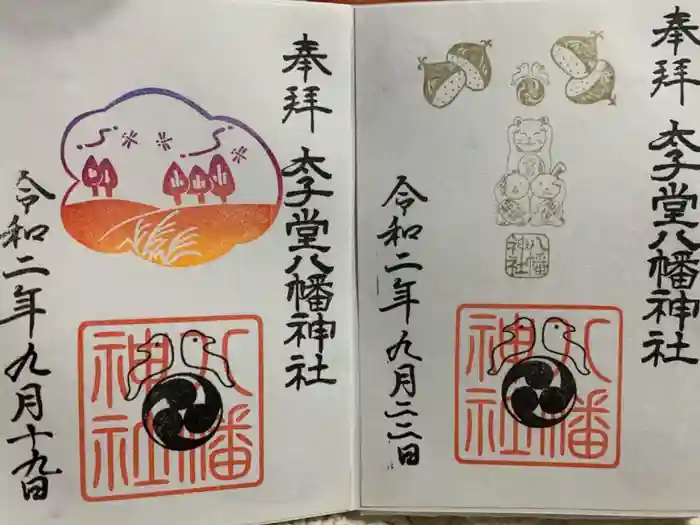 奉拝
太子堂八幡神社
八幡
神社
八幡
神社
令和二年九月二二日
奉拝
太子堂八幡神社
八幡
神社
令和二年九月十九日